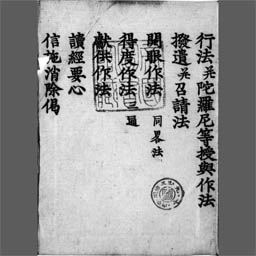 行法并陀羅尼等授與作法
撥遣并召請法
開眼作法 同畧法
得度作法二通
獻供作法
讀經要心
信施消除偈